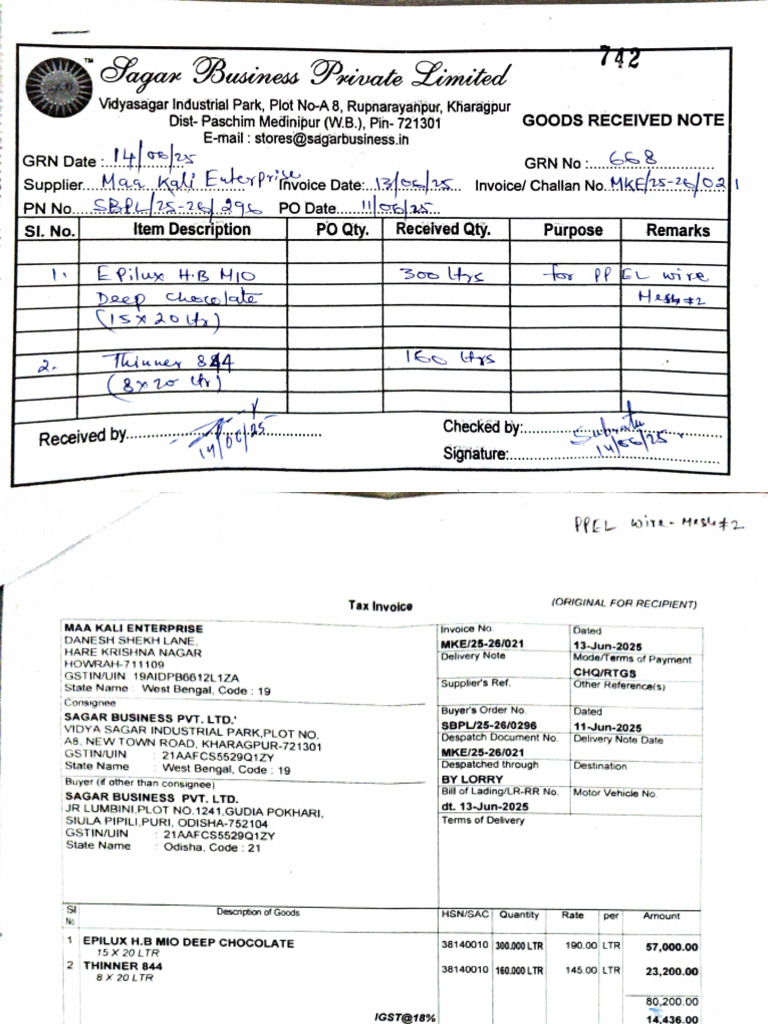 742
™
Sagar Business Private Limited
Vidyasagar Industrial Park, Plot No-A 8, Rupnarayanpur, Kharagpur
Dist- Paschim Medinipur (W.B.), Pin- 721301
E-mail : stores@sagarbusiness.in
GOODS RECEIVED NOTE
GRN Date : 14/06/25 GRN No : 668
Supplier Maa Kali Enterprise Invoice Date: 13/06/25 Invoice/ Challan No. MKE/25-26/021
PN No. SBPL/25-26/296 PO Date 11/06/25
Sl. No. Item Description PO Qty. Received Qty. Purpose Remarks
1. Epilux H.B MIO 300 ltrs for PPEL wire
Deep chocolate Mesh #2
(15 x 20 ltr)
2. Thinner 844 160 ltrs
(8 x 20 ltr)
Received by 14/06/25 Checked by: Subrata
Signature: 14/06/25
PPEL wire - Mesh #2
Tax Invoice (ORIGINAL FOR RECIPIENT)
MAA KALI ENTERPRISE
DANESH SHEKH LANE,
HARE KRISHNA NAGAR
HOWRAH-711109
GSTIN/UIN: 19AIDPB6612L1ZA
State Name : West Bengal, Code : 19
Invoice No. Dated
MKE/25-26/021 13-Jun-2025
Delivery Note Mode/Terms of Payment
CHQ/RTGS
Supplier's Ref. Other Reference(s)
Consignee
SAGAR BUSINESS PVT. LTD.'
VIDYA SAGAR INDUSTRIAL PARK,PLOT NO.
A8, NEW TOWN ROAD, KHARAGPUR-721301
GSTIN/UIN : 21AAFCS5529Q1ZY
State Name : West Bengal, Code : 19
Buyer's Order No. Dated
SBPL/25-26/0296 11-Jun-2025
Despatch Document No. Delivery Note Date
MKE/25-26/021
Despatched through Destination
BY LORRY
Bill of Lading/LR-RR No. Motor Vehicle No.
dt. 13-Jun-2025
Terms of Delivery
Buyer (if other than consignee)
SAGAR BUSINESS PVT. LTD.
JR LUMBINI,PLOT NO.1241,GUDIA POKHARI,
SIULA PIPILI,PURI, ODISHA-752104
GSTIN/UIN : 21AAFCS5529Q1ZY
State Name : Odisha, Code : 21
Sl No. Description of Goods HSN/SAC Quantity Rate per Amount
1 EPILUX H.B MIO DEEP CHOCOLATE 38140010 300.000 LTR 190.00 LTR 57,000.00
15 X 20 LTR
2 THINNER 844 38140010 160.000 LTR 145.00 LTR 23,200.00
8 X 20 LTR
80,200.00
IGST@18% 14,436.00